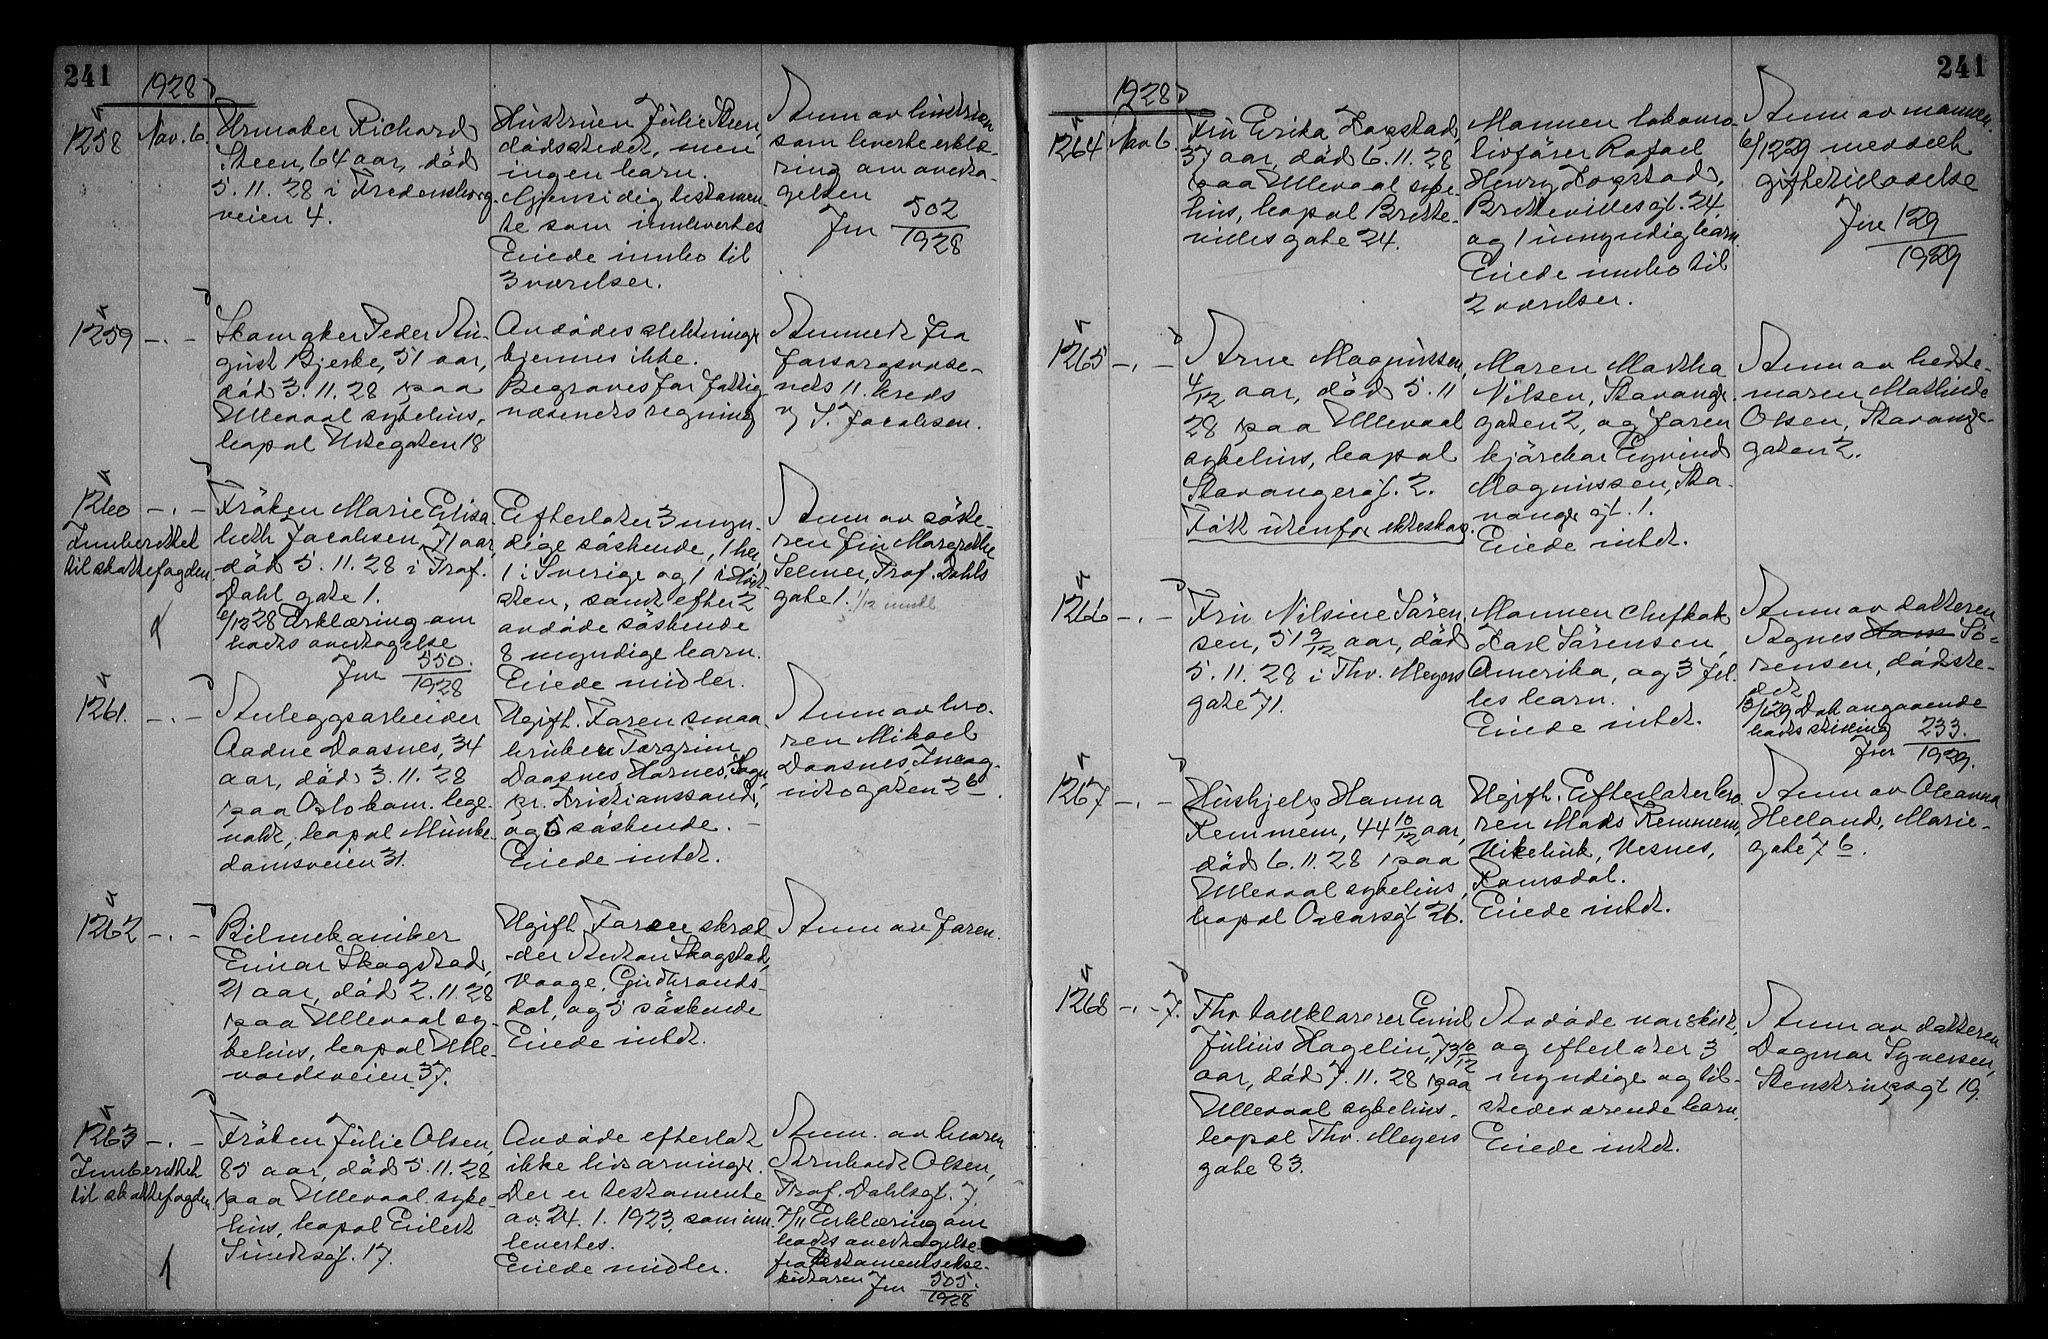 241
1928
1258
Nov. 6.
Urmaker Richard
Steen, 64 aar, död
5.11.28 i Fredensborg-
veien 4.
Hustruen Julie Steen,
dödsstedet, men
ingen barn.
Gjensidig testamen-
te som innlevertes
Eiede innbo til
3 værelser.
Anm av hustruen
som leverte erklæ-
ring om overta-
gelsen
Jnr 502
1928
1259
-.-
Skomaker Peder Au-
gust Bjerke, 51 aar,
död 3.11.28 paa
Ullevaal sykehus,
bopal Urtegaten 18
Avdödes slektninger
kjennes ikke.
Begraves for fattig-
væsenets regning
Anmeldt fra
forsorgsvæse-
nets 11. kreds
v/ S. Jacobsen.
1260
-.-
Innberettet
til skattefogden
Fröken Marie Elisa-
beth Jacobsen, 71 aar,
död 5.11.28 i Prof.
Dahl gate 1.
6/12 28 Erklæring om
boets overtagelse
Jnr 550.
1928
Efterlater 3 myn-
dige söskende, 1 her
1 i Sverige og 1 i
sten, samt efter 2
avdöde söskende
8 myndige barn.
Eiede midler.
Anm av söste-
ren fru Margrethe
Selmer, Prof. Dahls
gate 1.
1261.
-.-
Anleggsarbeider
Aadne Daasnes, 34
aar, död 3.11.28
paa Oslo kom. lege-
vakt, bopal Munke-
damsveien 31.
Ugift. Faren smaa-
bruker Torgrim
Daasnes Hornes,
pr. Kristianssand,
og 5 söskende.
Eiede intet.
Anm av bro-
ren Mikael
Daasnes, Incog-
nitogaten 3 b.
1262
-.-
Bilmekaniker
Einar Skogstad,
21 aar, död 2.11.28
paa Ullevaal sy-
kehus, bopal Ulle-
voldsveien 37.
Ugift. Faren skræd-
der Anton Skogstad,
Vaage, Gudbrands-
dal, og 5 söskende
Eiede intet.
Anm av faren.
1263
-.-
Innberettet
til skattefogden.
Fröken Julie Olsen,
85 aar, död 5.11.28
paa Ullevaal syke-
hus, bopal Eilert
Sundtsgt. 17.
Avdöde efterlot
ikke livsarvinger.
Der er testamente
av 24.1.1923, som inn-
levertes.
Eiede midler.
Anm. av broren
Arnholdt Olsen,
Prof. Dahlsgt. 7.
7/11 Erklæring om
boets overtagelse
fra testamentsekse-
kutoren Jnr 505.
1928
241
1928
1264
Nov 6.
Fru Erika Hogstad,
37 aar, död 6.11.28
paa Ullevaal syke-
hus, bopal Brette-
villes gate 24.
Mannen lokomo-
tivförer Rafael
Henry Hogstad,
Brettevillesgt. 24,
og 1 umyndig barn.
Eiede innbo til
2 værelser.
Anm av mannen.
6/12 29 meddelt
giftetilladelse
Jnr 129
1929
1265
-.-
Arne Magnussen,
4/12 aar, död 5.11
28 paa Ullevaal
sykehus, bopal
Stavangergt. 2.
Fött utenfor ekteskap.
Moren Martha
Nilsen, Stavanger-
gaten 2, og faren
kjörekar Eyvind
Magnussen, Sta-
vanger gt. 1.
Eiede intet.
Anm av beste-
moren Mathilde
Olsen, Stavanger-
gaten 2.
1266
-.-
Fru Nilsine Sören-
sen, 51 9/12 aar, död
5.11.28 i Thv. Meyers
gate 71.
Mannen Chefkok
Karl Sörensen,
Amerika, og 3 fel-
les barn.
Eiede intet.
Anm av datteren
Agnes Sö-
rensen, dödste-
det
Dok angaaende
boets skifting
Jnr 233.
1929.
1267
-.-
Hushjelp Hanna
Remmem, 44 10/12 aar,
död 6.11.28 paa
Ullevaal sykehus,
bopal Oscarsgt 26.
Ugift. Efterlater bro-
ren Mads Remmem,
Vikebuk, Vesnes,
Romsdal.
Eiede intet.
Anm av Oleanna
Heeland, Marie-
gate 7 b.
1268
-.-7.
Fhv tollklarerer Emil
Julius Hagelin, 73 10/12
aar, död 7.11.28 paa
Ullevaal sykehus,
bopal Thv. Meyers
gate 83.
Avdöde var skilt,
og efterlater 3
myndige og til-
stedeværende barn.
Eiede intet.
Anm av datteren
Dagmar Syversen,
Stenstrupsgt 19.